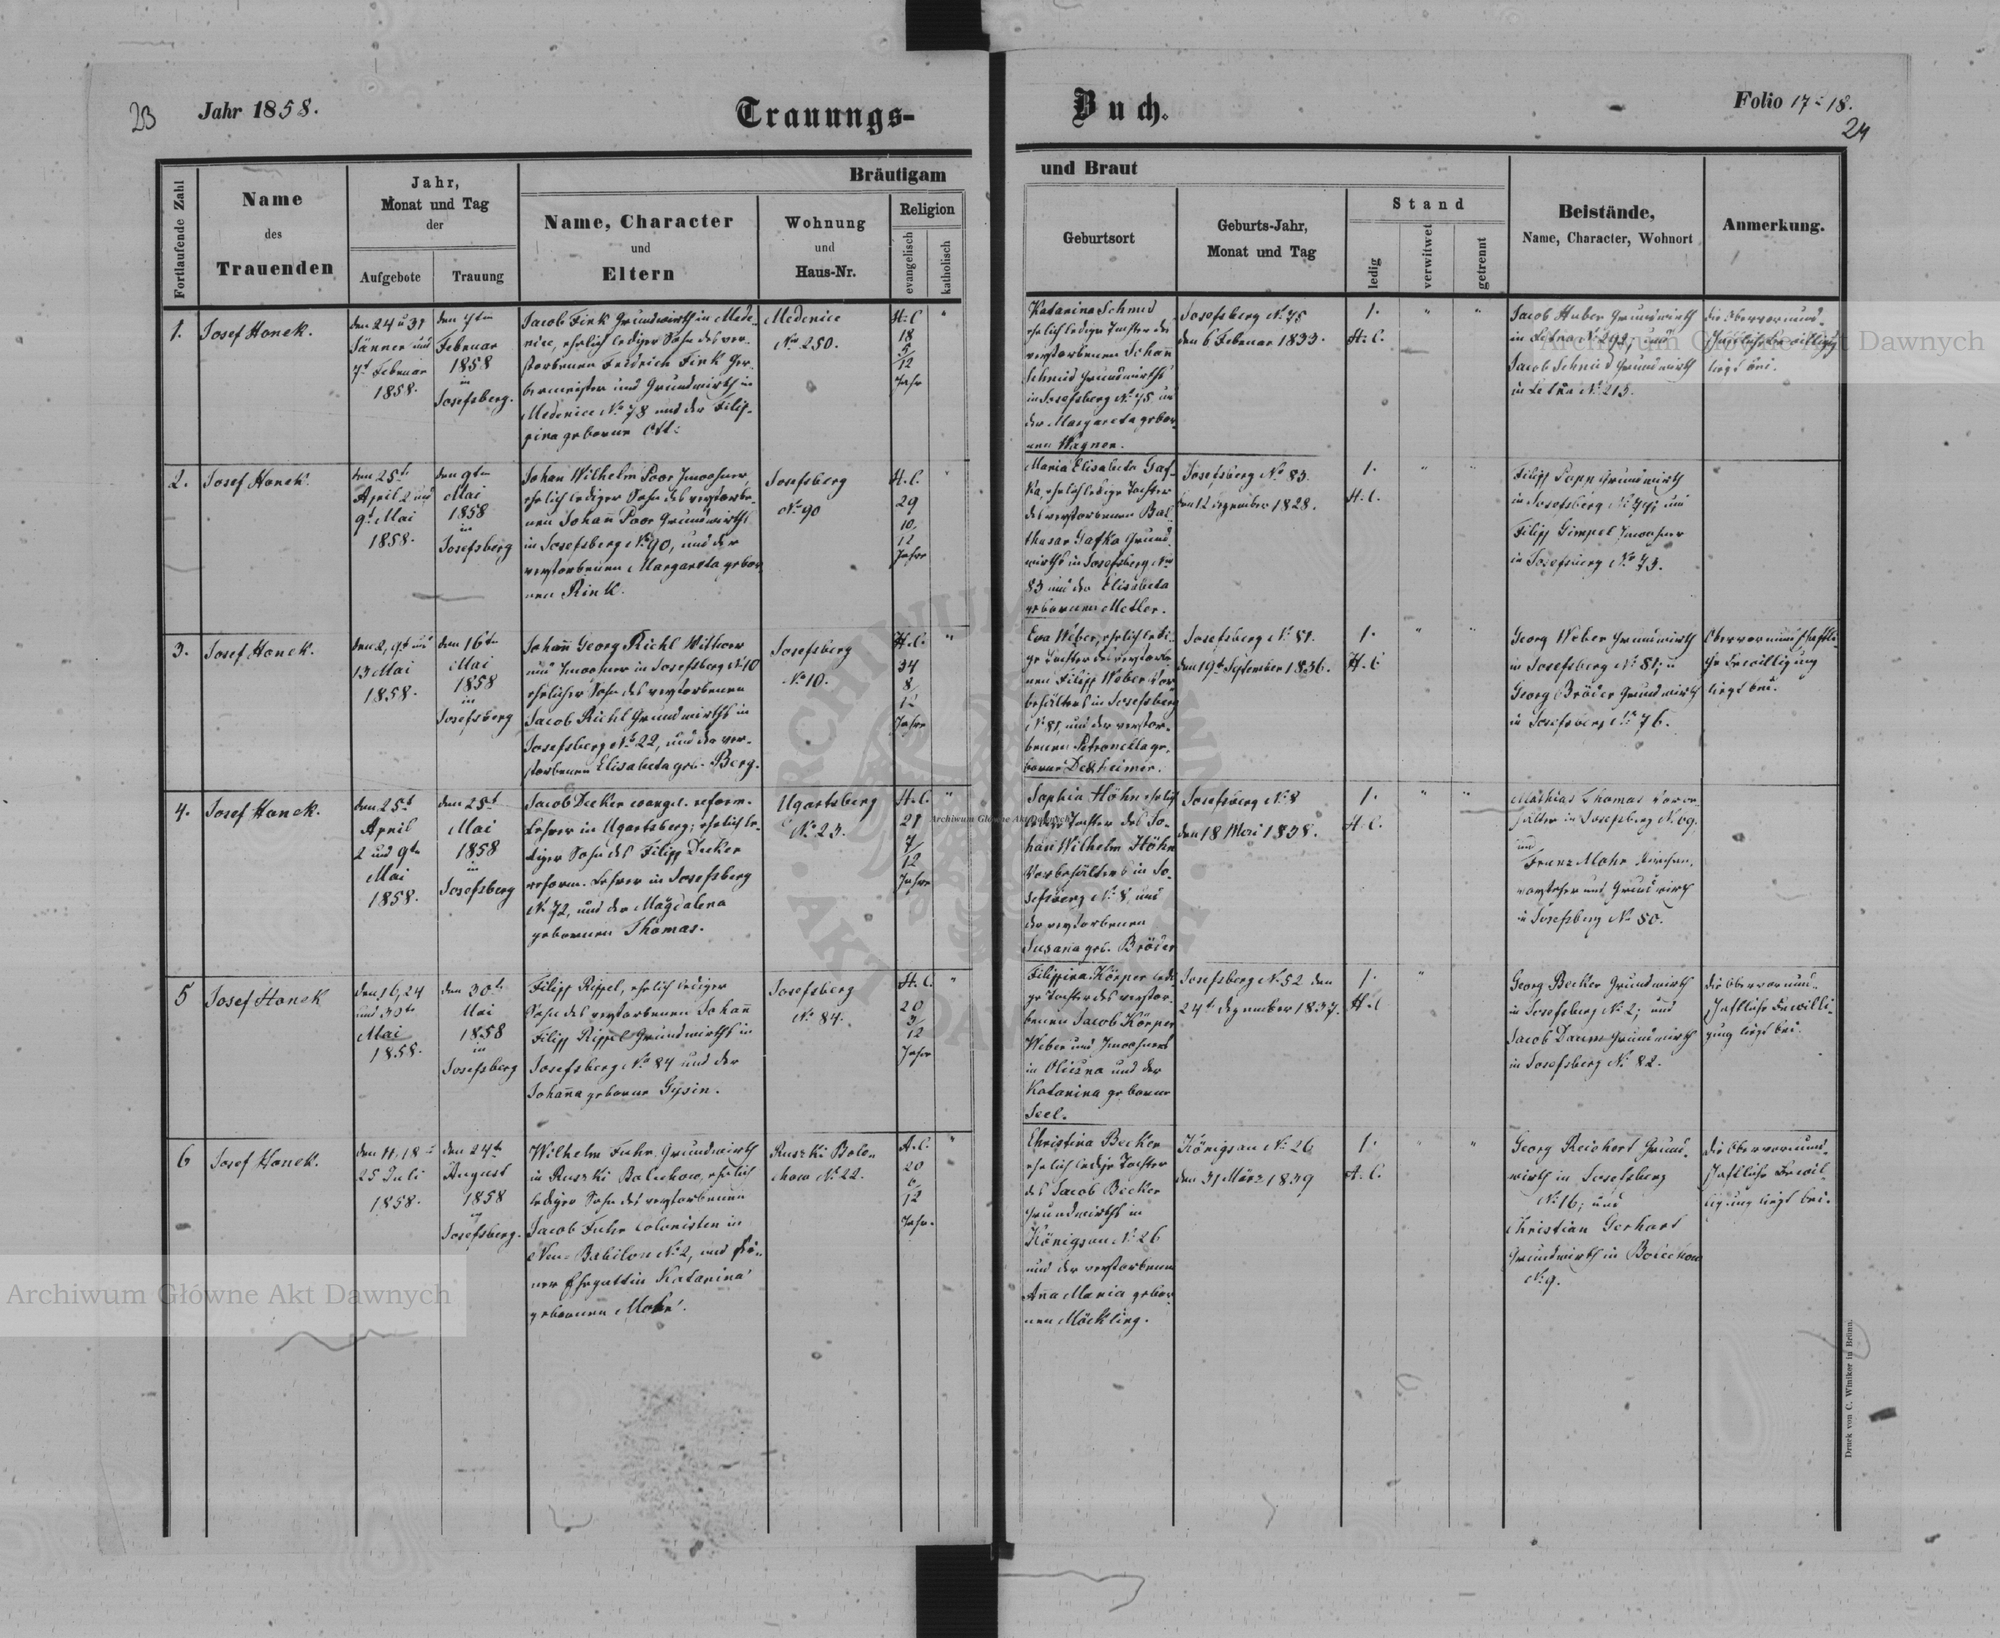 23
Jahr 1858.
Trauungs-
Buch.
Folio 17-18.
24
Fortlaufende Zahl
Name
des
Trauenden
Jahr,
Monat und Tag
der
Aufgebote
Trauung
Bräutigam
Name, Character
und
Eltern
Wohnung
und
Haus-Nr.
Religion
evangelisch
katholisch
und Braut
Geburtsort
Geburts-Jahr,
Monat und Tag
Stand
ledig
verwitwet
getrennt
Beistände,
Name, Character, Wohnort
Anmerkung.
1.
Josef Honek.
den 24 u 31
Jänner und
7t Februar
1858.
den 7ten
Februar
1858
in
Josefsberg.
Jacob Fink Grundwirth in Mede-
nice, ehelich lediger Sohn des ver-
storbenen Fridrich Fink Ger-
bermeister und Grundwirth in
Medenice No 78 und der Filip-
pina geborne Ott:
Medenice
No 250.
H. C.
18
5/12
Jahr
"
Katarina Schmid
ehelich ledige Tochter des
verstorbenen Johann
Schmid Grundwirths
in Josefsberg No 75 u
der Margareta gebor-
nen Wagner.
Josefsberg No 75
den 6 Februar 1833.
1.
H. C.
"
"
Jacob Huber Grundwirth
in Letnia No 292, und
Jacob Schmid Grundwirth
in Letnia No 213.
die Obervormund-
schaftliche Bewilligung
liegt bei.
2.
Josef Honek.
den 25t
April 2 und
9t Mai
1858.
den 9ten
Mai
1858
in
Josefsberg
Johan Wilhelm Poor Inwohner,
ehelich lediger Sohn des verstorbe-
nen Johann Poor Grundwirths
in Josefsberg No 90, und der
verstorbenen Margareta gebor-
nen Rink.
Josefsberg
No 90
H. C.
29
10/12
Jahre
"
Maria Elisabeta Gaf-
ka, ehelich ledige Tochter
des verstorbenen Bal-
thasar Gafka Grund-
wirths in Josefsberg No
83 und der Elisabeta
gebornen Metler.
Josefsberg No 83.
den 12 Dezember 1828.
1.
H. C.
"
"
Filipp Popp Grundwirth
in Josefsberg No 44; und
Filipp Gimpel Inwohner
in Josefsberg No 73.
3.
Josef Honek.
den 2, 9t und
13 Mai
1858.
den 16ten
Mai
1858
in
Josefsberg
Johann Georg Richl Wittwer
und Inwohner in Josefsberg No 10
ehelicher Sohn des verstorbenen
Jacob Richl Grundwirths in
Josefsberg No 22, und der ver-
storbenen Elisabeta geb. Berg.
Josefsberg
No 10.
H. C.
34
8/12
Jahre
"
Eva Weber, ehelich ledi-
ge Tochter des verstorbe-
nen Filipp Weber Vor-
behälters in Josefsberg
No 81, und der verstor-
benen Petronella ge-
borne Dexheimer.
Josefsberg No 81.
den 19t September 1836.
1.
H. C
"
"
Georg Weber Grundwirth
in Josefsberg No 81; u
Georg Bröder Grundwirth
in Josefsberg No 76.
Obervormundschaftli-
che Bewilligung
liegt bei.
4.
Josef Honek.
den 25t
April
2 und 9ten
Mai
1858.
den 25t
Mai
1858
in
Josefsberg
Jacob Decker evangel. reform.
Lehrer in Ugartsberg; ehelich le-
diger Sohn des Filipp Decker
reform. Lehrer in Josefsberg
No 72, und der Magdalena
gebornen Thomas.
Ugartsberg
No 23.
H. C.
21
7/12
Jahre
"
Sophia Höhn ehelich
ledige Tochter des Jo-
hann Wilhelm Höhn
Vorbehälters in Jo-
sefsberg No 8, und
der verstorbenen
Susana geb. Bröder
Josefsberg No 8
den 18 März 1838.
1.
H. C.
"
"
Mathias Thomas Vorbe-
hälter in Josefsberg No 69.
und
Franz Mohr Kirchen-
vorsteher und Grundwirth
in Josefsberg No 50.
5
Josef Honek
den 16, 24
und 30ten
Mai
1858.
den 30t
Mai
1858
in
Josefsberg
Filipp Rippel, ehelich lediger
Sohn des verstorbenen Johann
Filipp Rippel Grundwirths in
Josefsberg No 84 und der
Johanna geborne Gysin.
Josefsberg
No 84.
H. C.
20
3/12
Jahre
"
Filippina Körper ledi-
ge Tochter des verstor-
benen Jacob Körper
Weber und Inwohners
in Olicsna und der
Katarina geborne
Seel.
Josefsberg No 52 den
24t Dezember 1837.
1.
H. C
"
Georg Becker Grundwirth
in Josefsberg No 2; und
Jacob Daum Grundwirth
in Josefsberg No 82.
die Obervormund-
schaftliche Bewilli-
gung liegt bei.
6
Josef Honek.
den 11, 18 u
25 Juli
1858.
den 24t
August
1858
in
Josefsberg.
Wilhelm Fuhr Grundwirth
in Ruszki Bolechow, ehelich
lediger Sohn des verstorbenen
Jacob Fuhr Colonisten in
Neu-Babilon No 2, und sei-
ner Ehegattin Katarina
gebornen Mohr.
Ruszki Bole-
chow No 22.
A. C.
20
6/12
Jahr.
"
Christina Becker
ehelich ledige Tochter
des Jacob Becker
Grundwirths in
Königsau No 26
und der verstorbenen
Anna Maria gebor-
nen Möckling.
Königsau No 26
den 31 März 1839
1.
A. C.
"
"
Georg Reichert Grund-
wirth in Josefsberg
No 16; und
Christian Gerhart
Grundwirth in Bolechow
No 9.
die Obervormund-
schaftliche Bewil-
ligung liegt bei.
Druck von C. Winiker in Brünn.
Archiwum Główne Akt Dawnych
Archiwum Główne Akt Dawnych
Archiwum Główne Akt Dawnych